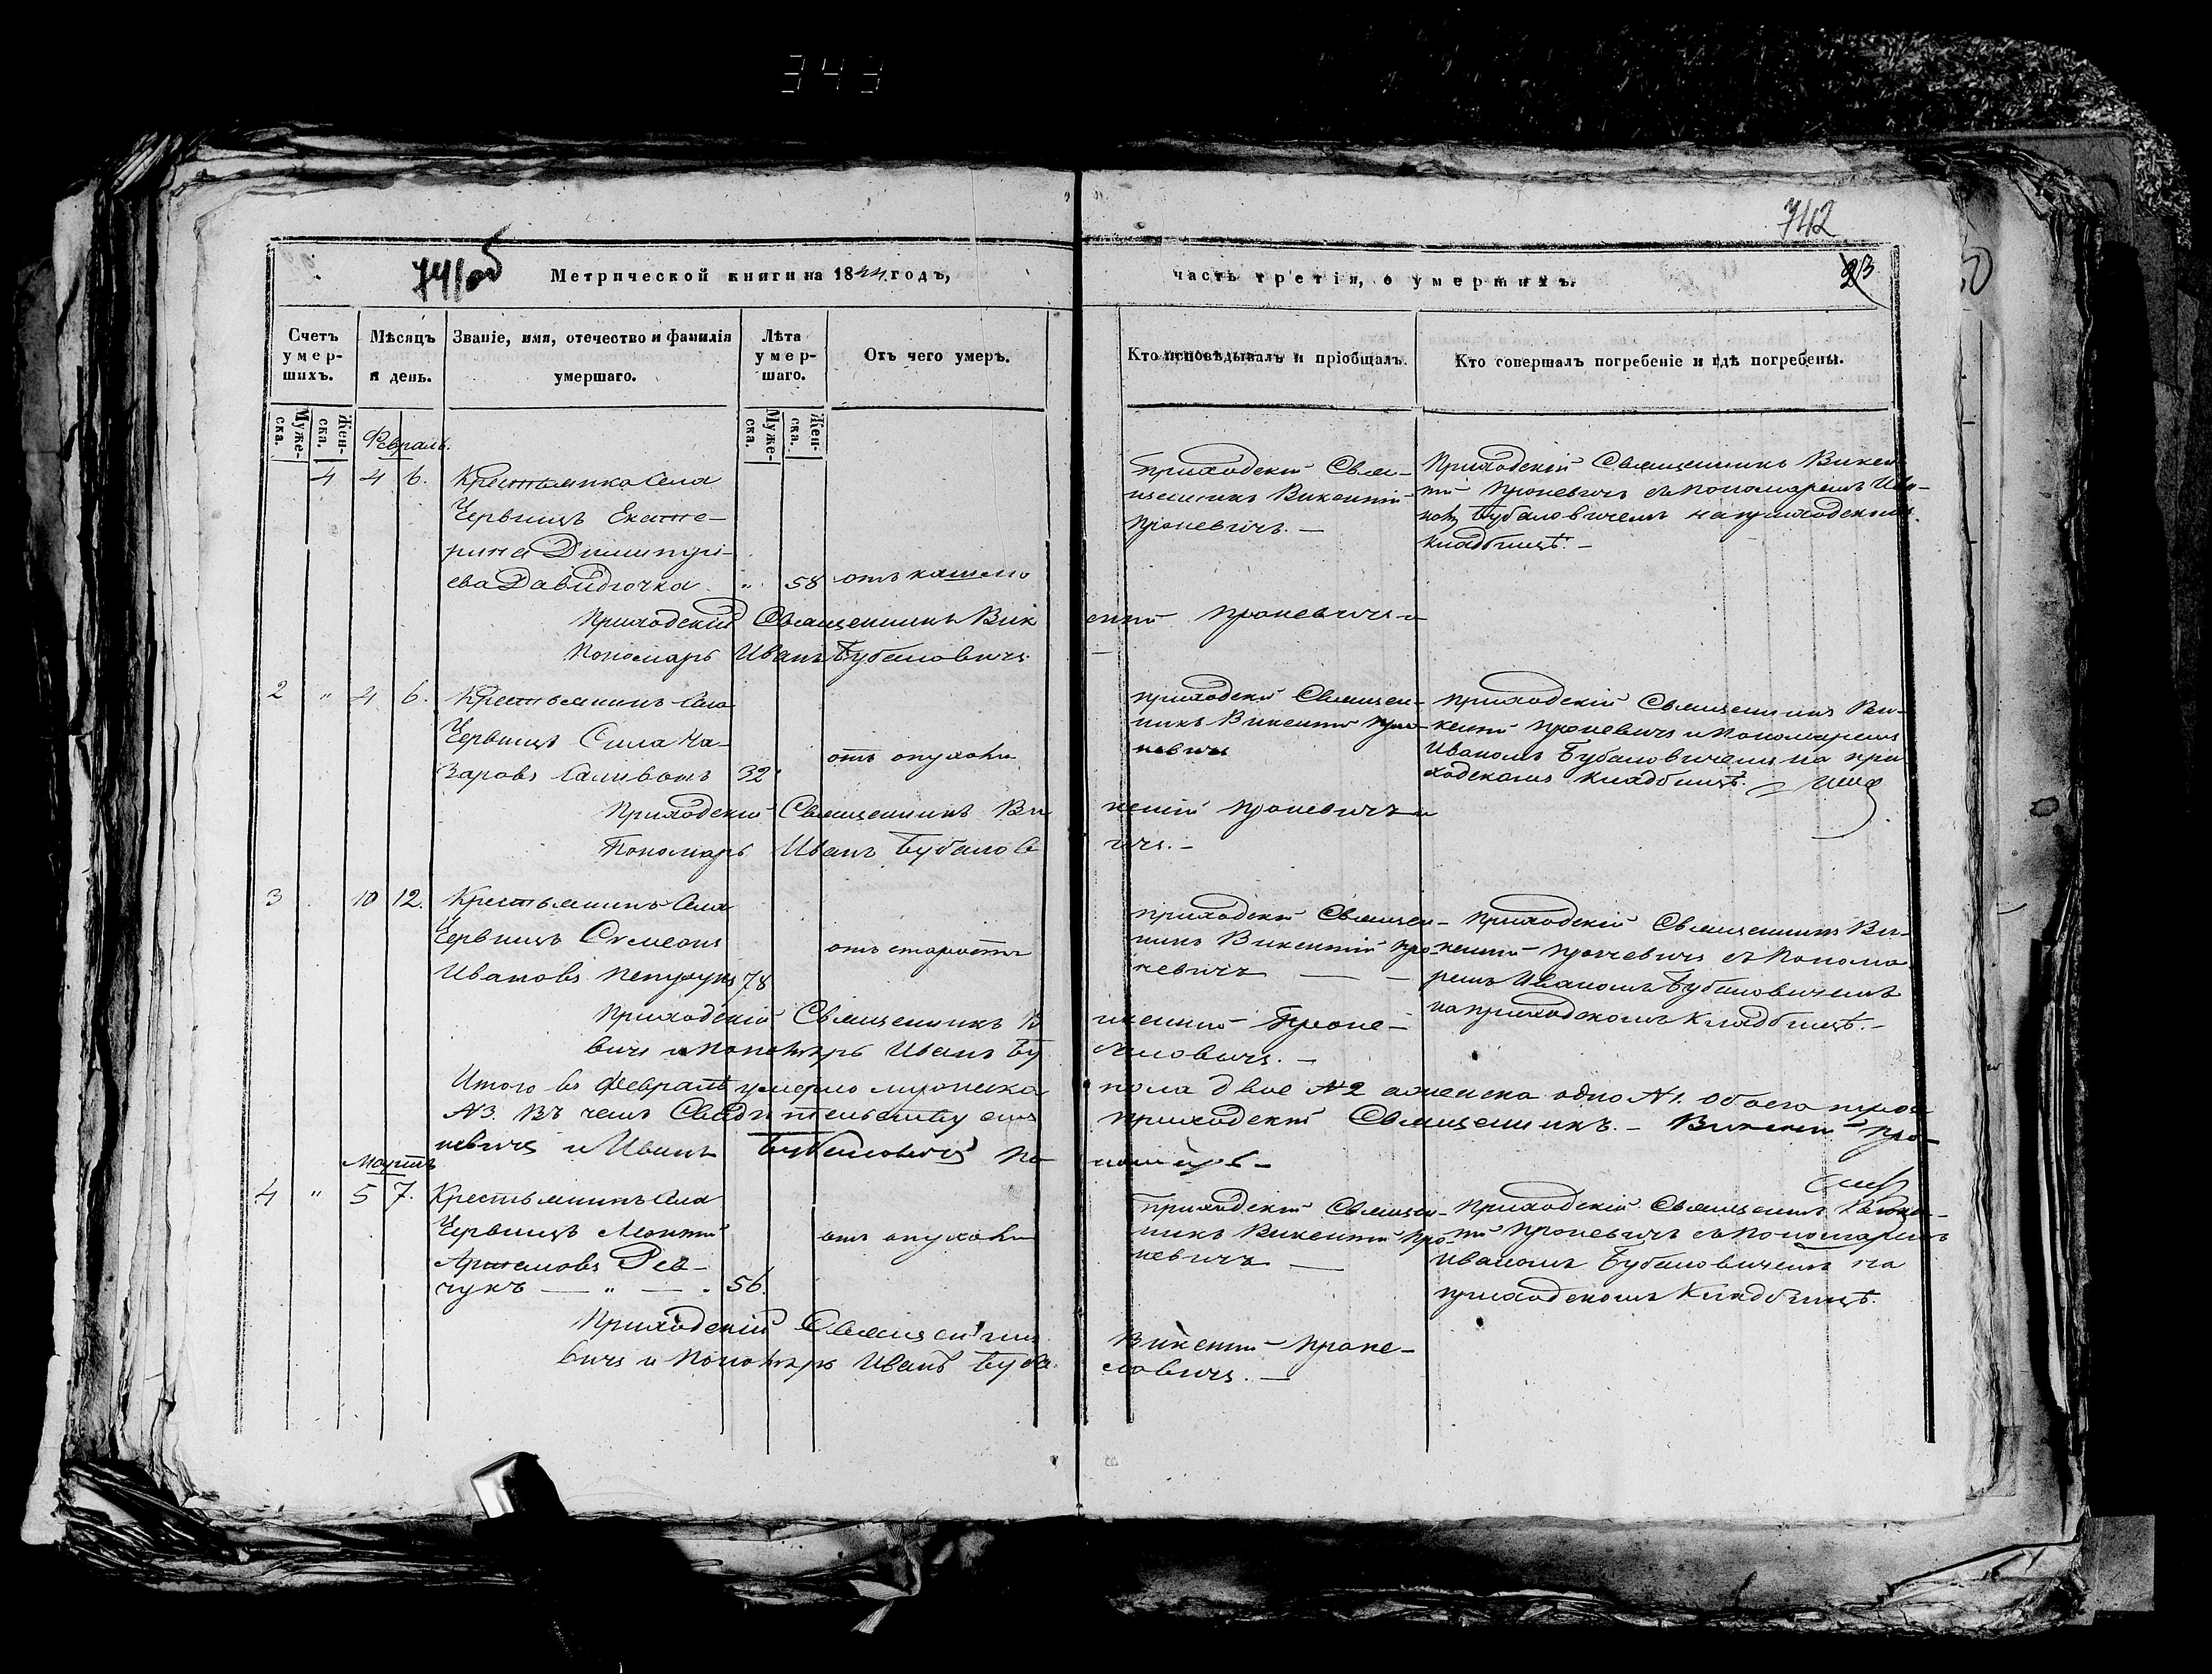 343
742
741об
Метрической книги на 1844 годъ,
часть третія, о умершихъ.
23
Счетъ умер-шихъ.
Мѣсяцъ и день.
Званіе, имя, отечество и фамилія умершаго.
Лѣта умер-шаго.
Отъ чего умеръ.
Кто исповѣдывалъ и пріобщалъ.
Кто совершалъ погребеніе и гдѣ погребены.
Муже-ска.
Жен-ска.
Муже-ска.
Жен-ска.
Февраль.
4 4 6. Крестьянка Села
Червищъ Екате-
рина Димитрі-
ева Давидючка " 58 отъ кашлю
Приходскій Свя-
щенникъ Викентій
Проневичъ. —
Приходскій Священникъ Викен-
тій Проневичъ съ Пономаремъ Ива-
номъ Бубаловичемъ на приходскомъ
кладбищѣ. —
Приходскій Священникъ Викентій Проневичъ и
Пономарь Иванъ Бубаловичъ —
2 " 4 6. Крестьянинъ Села
Червищъ Сила На-
заровъ 32 отъ опухоли
Приходскій Священ-
никъ Викентій Про-
невичъ
Приходскій Священникъ Ви-
кентій Проневичъ и Пономаремъ
Иваномъ Бубаловичемъ на при
ходскомъ кладбищѣ.
Приходскій Священникъ Викентій Проневичъ и
Пономарь Иванъ Бубаловичъ. —
3 10 12. Крестьянинъ Села
Червищъ Симеонъ
Ивановъ 78 отъ старости
Приходскій Священ-
никъ Викентій Про-
невичъ —
Приходскій Священникъ Ви-
кентій Проневичъ съ Понома
ремъ Иваномъ Бубаловичемъ
на приходскомъ кладбищѣ. —
Приходскій Священникъ Викентій Проне-
вичъ и Пономарь Иванъ Бубаловичъ. —
Итого въ Февралѣ умерло мужеска пола двое №2 а женска одно №1. обоего трое
№3. Въ чемъ Свидѣтельствуемъ Приходскій Священникъ. — Викентій Про-
невичъ и Иванъ Бубаловичъ Пономарь —
Мартъ
4 " 5 7. Крестьянинъ Села
Червищъ
Артемовъ Рев-
чукъ — " — . 56. отъ опухоли
Приходскій Священ-
никъ Викентій Про-
невичъ —
Приходскій Священникъ Викен-
тій Проневичъ съ Пономаремъ
Иваномъ Бубаловичемъ на
приходскомъ кладбищѣ.
Приходскій Священникъ Викентій Проне-
вичъ и Пономарь Иванъ Бубаловичъ. —